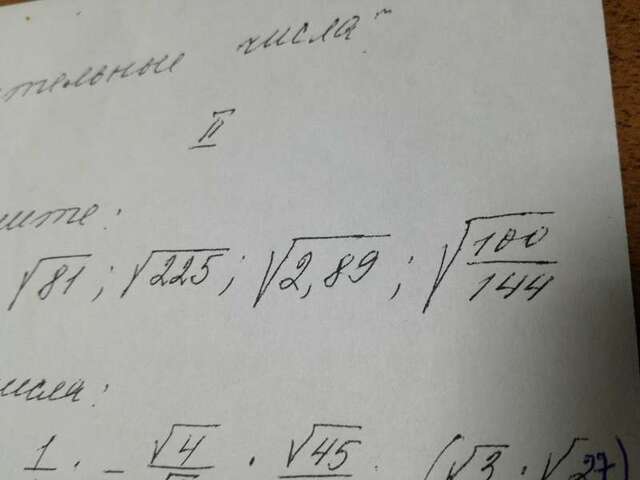 тельные числа"
II
ите:
√81 ; √225 ; √2,89 ; √100/144
исла:
1 . - √4 . √45 . (√3 . √27)